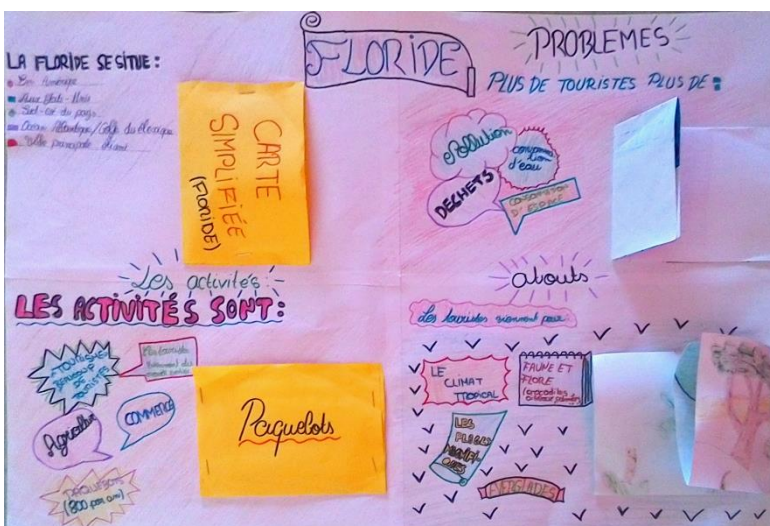 FLORIDE
LA FLORIDE SE SITUE:
En Amérique
Aux Etats-Unis
Sud-est du pays
Océan Atlantique/Golfe du Mexique
Ville principale
CARTE
SIMPLIFIÉE
(FLORIDE)
PROBLEMES
PLUS DE TOURISTES PLUS DE:
Pollution
consomma
tion
d'eau
DECHETS
CONSOMMATION
D'ESPACE
Les activités:
LES ACTIVITÉS SONT:
TOURISME
BEAUCOUP
DE
TOURISTES
Agriculture
COMMERCE
PAQUEBOTS
(800 par an)
Paquebots
atouts
Les touristes viennent pour:
LE
CLIMAT
TROPICAL
FAUNE ET
FLORE
(crocodiles
LES
PLAGES
EVERGLADES